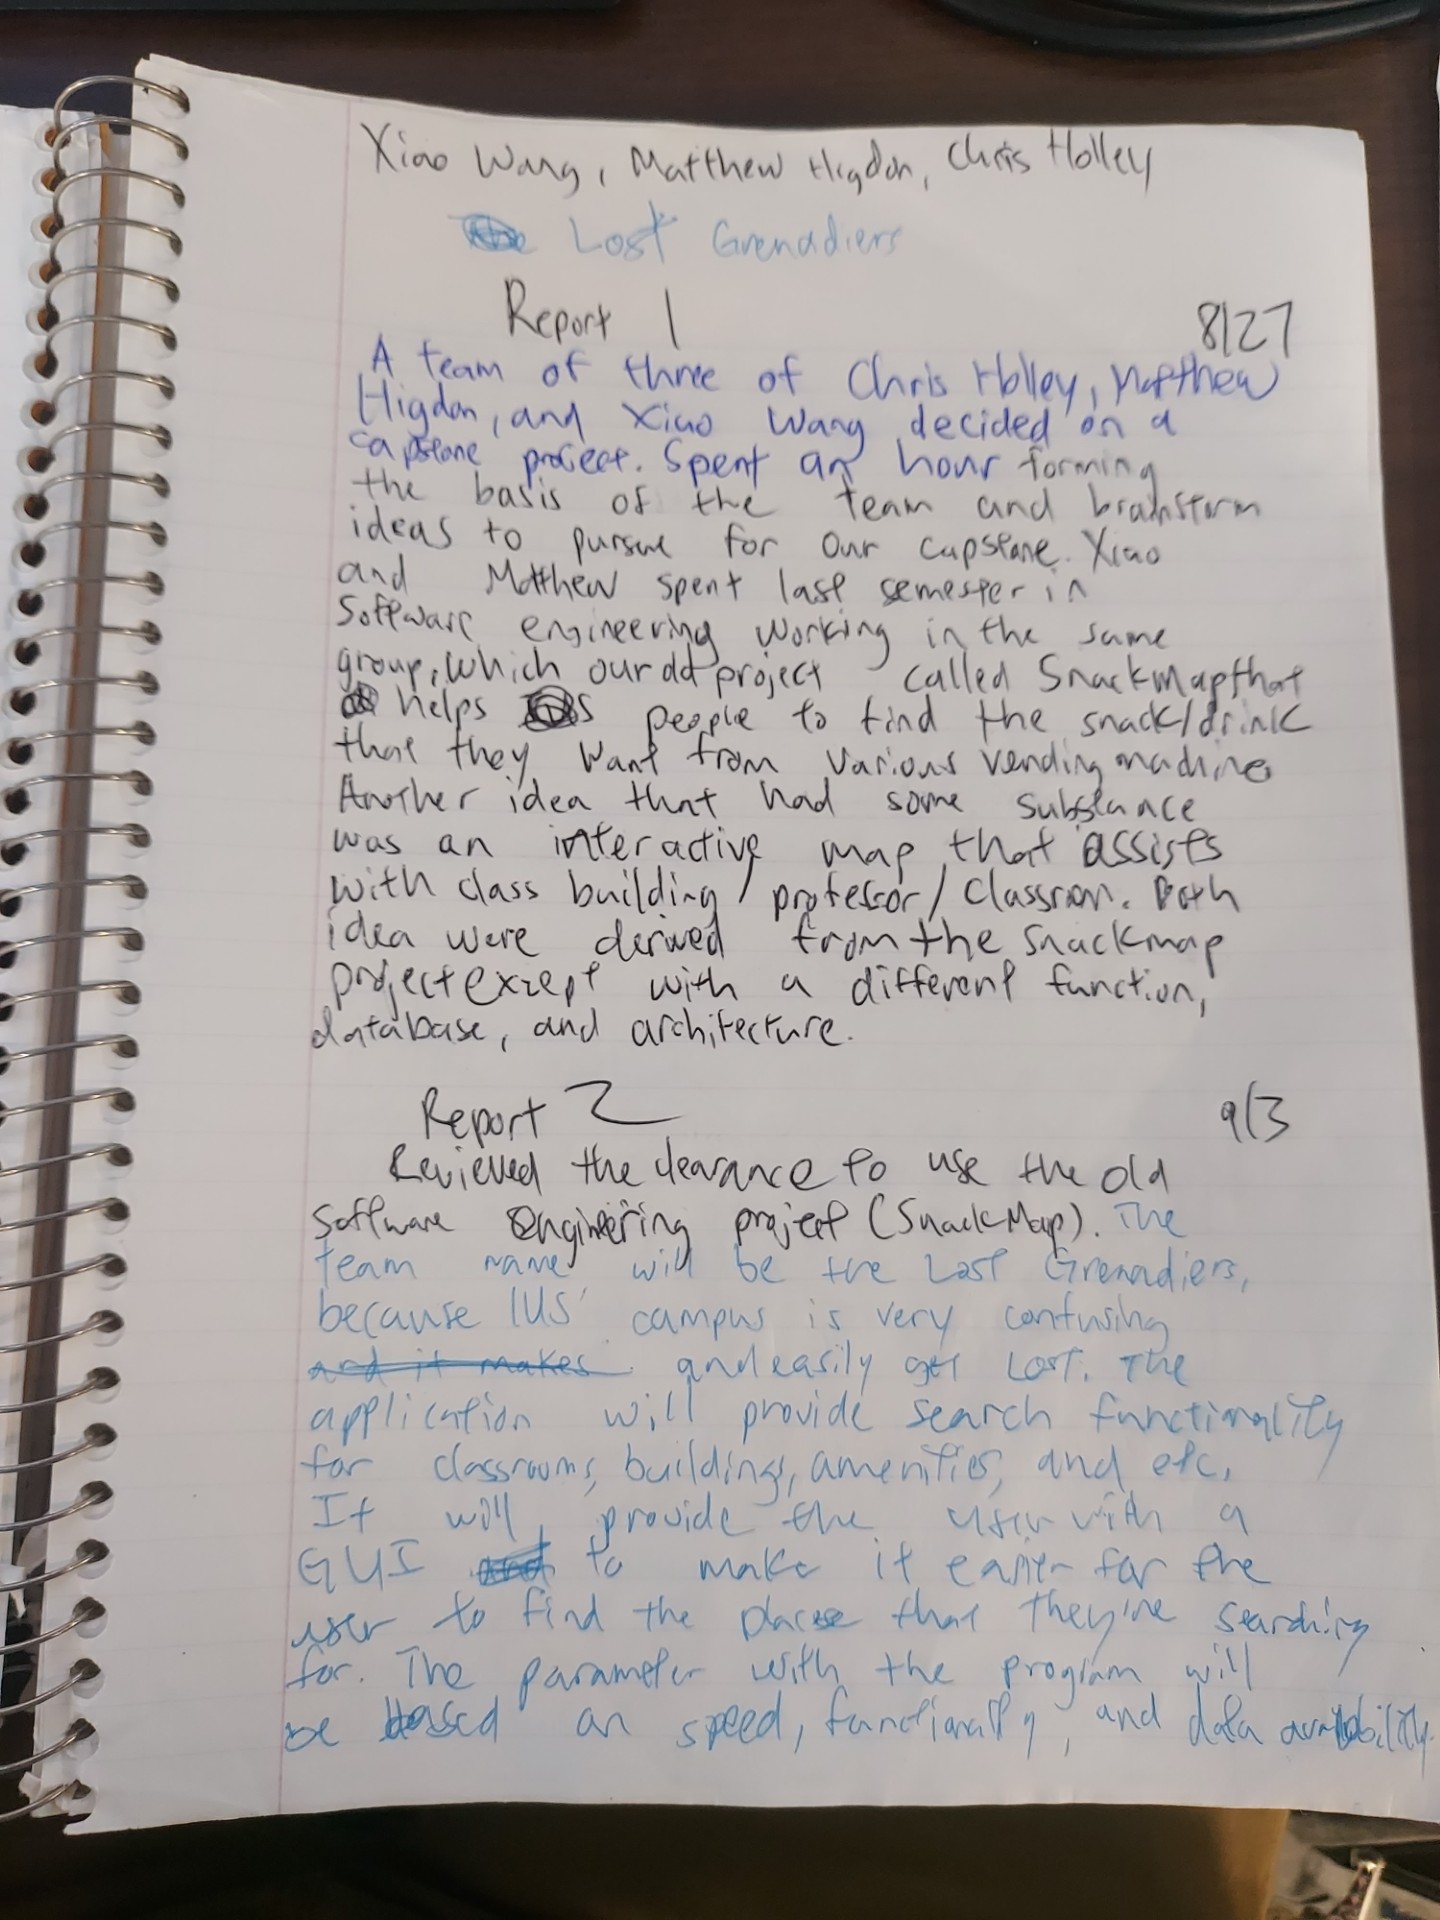 Xiao Wang, Matthew Higdon, Chris Holley
Lost Grenadiers
Report 1 8/27
A team of three of Chris Holley, Matthew
Higdon, and Xiao Wang decided on a
capstone project. Spent an hour forming
the basis of the team and brainstorm
ideas to pursue for our capstone. Xiao
and Matthew spent last semester in
Software engineering working in the same
group, which our old project called Snackmap that
helps people to find the snack/drink
that they want from various vending machines
Another idea that had some substance
was an interactive map that assists
with class building / professor / classroom. Both
idea were derived from the snackmap
project except with a different function,
database, and architecture.
Report 2 9/3
Recieved the clearance to use the old
software engineering project (SnackMap). The
team name will be the Lost Grenadiers,
because IUS' campus is very confusing
and it makes and easily get lost. The
application will provide search functionality
for classrooms, buildings, amenities, and etc.
It will provide the user with a
GUI to make it easier for the
user to find the place that they're searching
for. The parameter with the program will
be based on speed, functionality, and data availability.